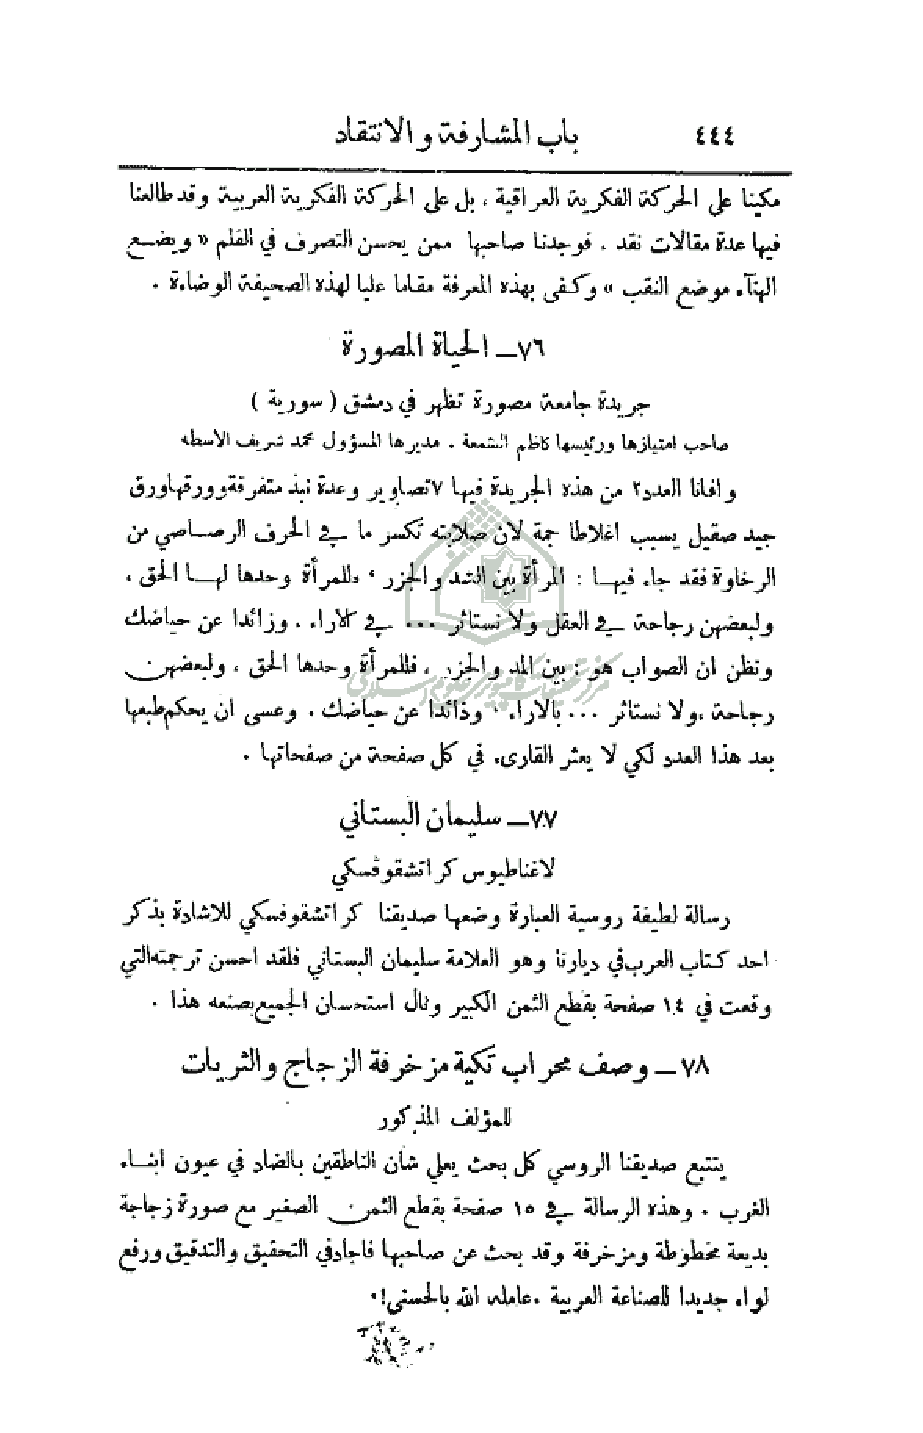 ٤٤٤ باب المشارفة والانتقاد
مكينا على الحركة الفكرية العراقية ، بل على الحركة الفكرية العربية وقد طالعنا
فيها عدة مقالات نقد . فوجدنا صاحبها ممن يحسن التصرف في القلم « ويضع
الهنآء موضع النقب » وكفى بهذه المعرفة مقاما عليا لهذه الصحيفة الوضاءة .
٧٦ـ الحياة المصورة
جريدة جامعة مصورة تظهر في دمشق ( سورية )
صاحب امتيازها ورئيسها كاظم الشمعة . مديرها المسؤول محمد شريف الاسطه
وافانا العدد ٢ من هذه الجريدة فيها ٧ تصاوير وعدة نبذ متفرقة وورقها ورق
جيد صقيل يسبب اغلاطا جمة لان صلابته تكسر ما في الحرف الرصاصي من
الرخاوة فقد جاء فيها : المرأة بين الشد والجزر ، للمرأة وحدها لها الحق ،
ولبعضهن رجاحة في العقل ولا نستاثر ... في كلاراء . وزائدا عن حياضك
ونظن ان الصواب هو : بين المد والجزر ، فللمرأة وحدها الحق ، ولبعضهن
رجاحة ، ولا نستاثر ... بالاراء ، وذائدا عن حياضك . وعسى ان يحكم طبعها
بعد هذا العدد لكي لا يعثر القارىء في كل صفحة من صفحاتها .
٧٧ـ سليمان البستاني
لاغناطيوس كراتشقوفسكي
رسالة لطيفة روسية العبارة وضعها صديقنا كراتشقوفسكي للاشادة بذكر
احد كتاب العرب في ديارنا وهو العلامة سليمان البستاني فلقد احسن ترجمته التي
وقعت في ١٤ صفحة بقطع الثمن الكبير ونال استحسان الجميع بصنعه هذا .
٧٨ـ وصف محراب تكية مزخرفة الزجاج والثريات
للمؤلف المذكور
يتتبع صديقنا الروسي كل بحث يعلي شأن الناطقين بالضاد في عيون ابناء
الغرب . وهذه الرسالة في ١٥ صفحة بقطع الثمن الصغير مع صورة زجاجة
بديعة مخطوطة ومزخرفة وقد بحث عن صاحبها فاجاد في التحقيق والتدقيق ورفع
لواء جديدا للصناعة العربية . عامله الله بالحسنى !
مركز تحقيقات كامپيوتري علوم اسلامي